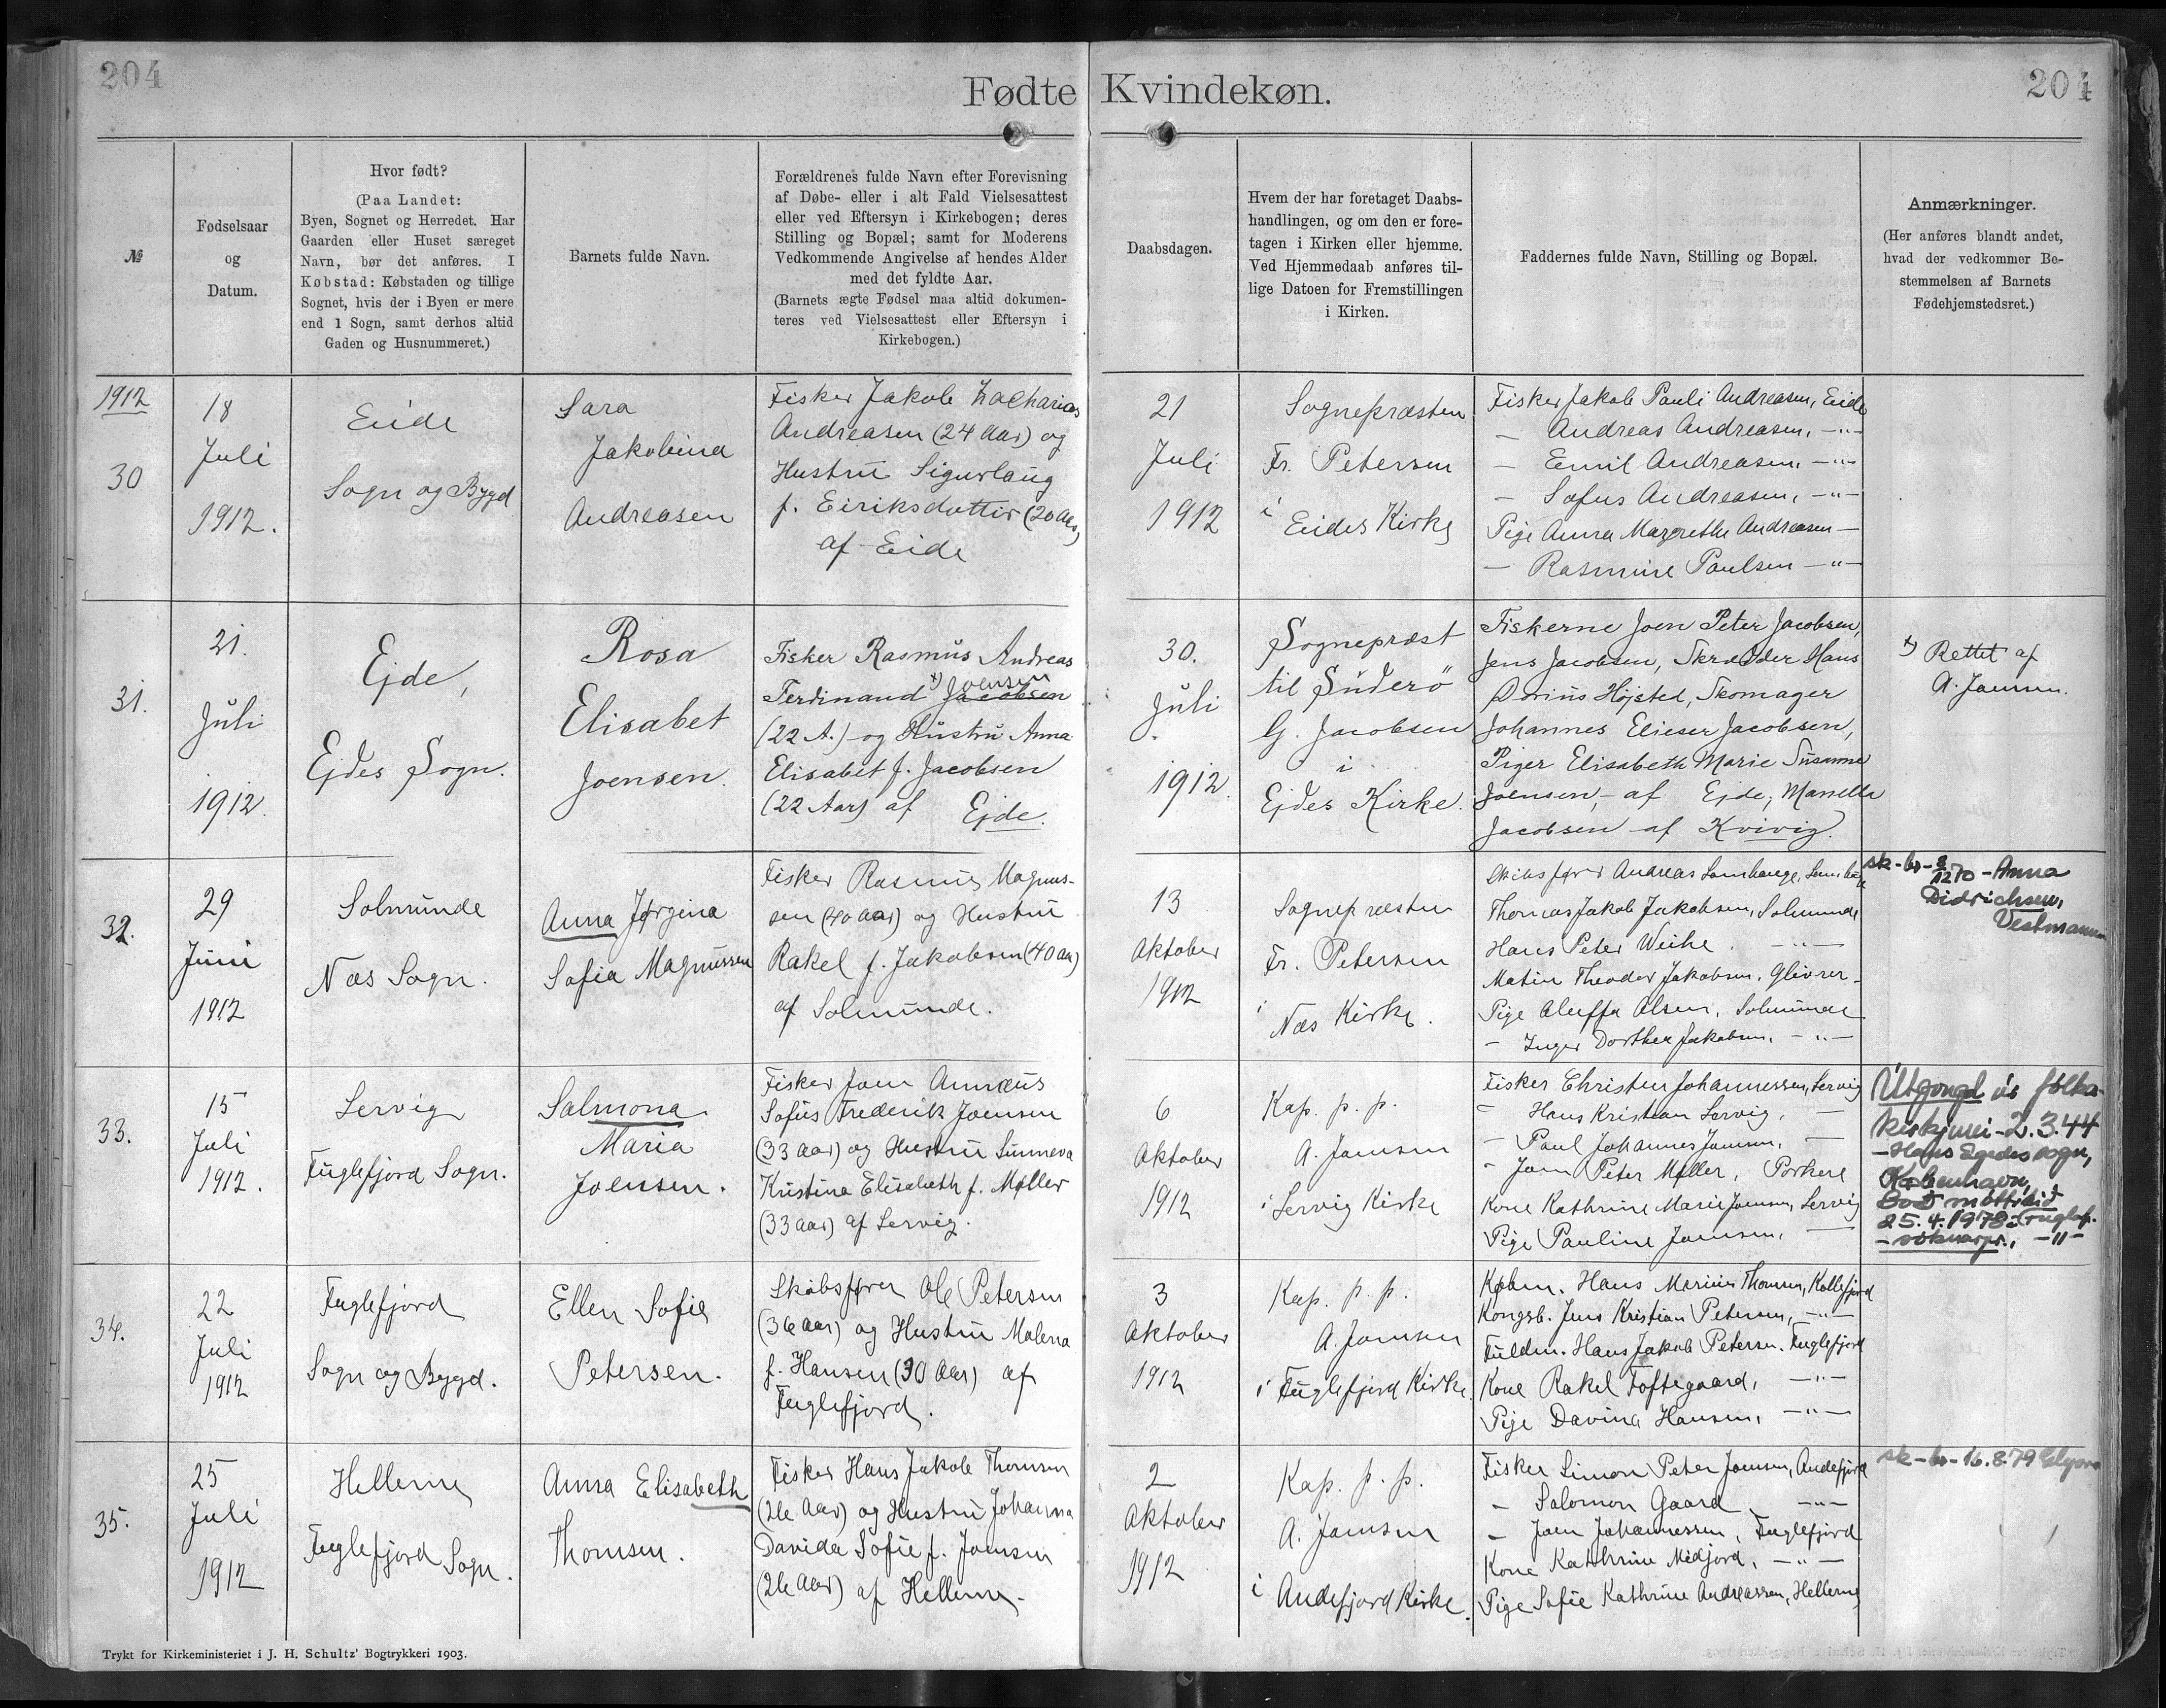 204
Fødte Kvindekøn.
204
№
Fødselsaar
og
Datum.
Hvor født?
(Paa Landet:
Byen, Sognet og Herredet. Har
Gaarden eller Huset særeget
Navn, bør det anføres. I
Købstad: Købstaden og tillige
Sognet, hvis der i Byen er mere
end 1 Sogn, samt derhos altid
Gaden og Husnummeret.)
Barnets fulde Navn.
Forældrenes fulde Navn efter Forevisning
af Døbe- eller i alt Fald Vielsesattest
eller ved Eftersyn i Kirkebogen; deres
Stilling og Bopæl; samt for Moderens
Vedkommende Angivelse af hendes Alder
med det fyldte Aar.
(Barnets ægte Fødsel maa altid dokumen-
teres ved Vielsesattest eller Eftersyn i
Kirkebogen.)
Daabsdagen.
Hvem der har foretaget Daabs-
handlingen, og om den er fore-
tagen i Kirken eller hjemme.
Ved Hjemmedaab anføres til-
lige Datoen for Fremstillingen
i Kirken.
Faddernes fulde Navn, Stilling og Bopæl.
Anmærkninger.
(Her anføres blandt andet,
hvad der vedkommer Be-
stemmelsen af Barnets
Fødehjemstedsret.)
1912
30
18
Juli
1912.
Eide
Sogn og Bygd
Sara
Jakobina
Andreasen
Fisker Jakob Zacharias
Andreasen (24 Aar) og
Hustru Sigurlaug
f. Eiriksdottir (20 Aar)
af Eide
21
Juli
1912
Sognepræsten
Fr. Petersen
i
Eides Kirke
Fisker Jakob Pauli Andreasen, Eide
— Andreas Andreasen, —"—
— Emil Andreasen, —"—
— Sofus Andreasen, —"—
Pige Anna Margrethe Andreasen —
— Rasmine Paulsen —"—
31.
21.
Juli
1912.
Ejde,
Ejdes Sogn.
Rosa
Elisabet
Joensen.
Fisker Rasmus Andreas
Joensen
Ferdinand Jacobsen
(22 A.) og Hustru Anna
Elisabet f. Jacobsen
(22 Aar) af Ejde.
30.
Juli
1912.
Sognepræst
til Süderö
G. Jacobsen
i
Ejdes Kirke.
Fiskerne Joen Peter Jacobsen,
Jens Jacobsen, Skrædder Hans
Dorius Højsted, Skomager
Johannes Elieser Jacobsen,
Piger Elisabeth Marie Susanne
Joensen, - af Ejde,
Jacobsen af Kvivig.
Rettet af
A. Joensen.
32.
29
Juni
1912
Solmunde
Næs Sogn.
Anna Jørgina
Sofia Magnussen
Fisker Rasmus Magnus-
sen (40 Aar) og Hustru
Rakel f. Jakobsen (40 Aar)
af Solmunde.
13
Oktober
1912
Sognepræsten
Fr. Petersen
i
Næs Kirke.
Skibsfører Andreas
Thomas Jakob Jakobsen, Solmunde
Hans Peter Weihe. —"—
Matin Theodor Jakobsen, Glivrer
Pige Olsen, Solmunde
— Inger Dorthea Jakobsen, —"—
sk-br-
1270 - Anna
Didrichsen,
Vestmanna
33.
15
Juli
1912.
Lervig
Fuglefjord Sogn.
Salmona
Maria
Joensen.
Fisker Joen Annæus
Sofus Frederik Joensen
(33 Aar) og Hustru Sunneva
Kristina Elisabeth f. Møller
(33 Aar) af Lervig.
6
Oktober
1912
Kap. p. p.
A. Joensen
i Lervig Kirke
Fisker Christen Johannessen, Lervig
— Hans Kristian Lervig, —
— Paul Johannes Joensen, —
— Joen Peter Møller, Porkere
Kone Kathrine Marie Joensen, Lervig
Pige Pauline Joensen, —
Útgongd úr fólka-
kirkjuni - 2.3.44
- Hans Egedes sogn,
København,
25.4.1978
34.
22
Juli
1912
Fuglefjord
Sogn og Bygd.
Ellen Sofie
Petersen.
Skibsfører Ole Petersen
(36 Aar) og Hustru Malena
f. Hansen (30 Aar) af
Fuglefjord.
3
Oktober
1912
Kap. p. p.
A. Joensen
i Fuglefjord Kirke.
Købm. Hans Marius Thomsen, Kollefjord
Kongsb. Jens Kristian Petersen, —"—
Fuldm. Hans Jakob Petersen, Fuglefjord
Kone Rakel Toftegaard, —"—
Pige Davina Hansen, —"—
35.
25
Juli
1912
Hellerne
Fuglefjord Sogn.
Anna Elisabeth
Thomsen.
Fisker Hans Jakob Thomsen
(26 Aar) og Hustru Johanna
Davida Sofie f. Joensen
(26 Aar) af Hellerne.
2
Oktober
1912
Kap. p. p.
A. Joensen
i
Andefjord Kirke.
Fisker Simon Peter Joensen, Andefjord
— Salomon Gaard, —"—
— Joen Johannessen, Fuglefjord
Kone Kathrine Midjord, —"—
Pige Sofie Kathrine Andreassen, Hellerne
sk-br-16.8.79
Trykt for Kirkeministeriet i J. H. Schultz' Bogtrykkeri 1903.